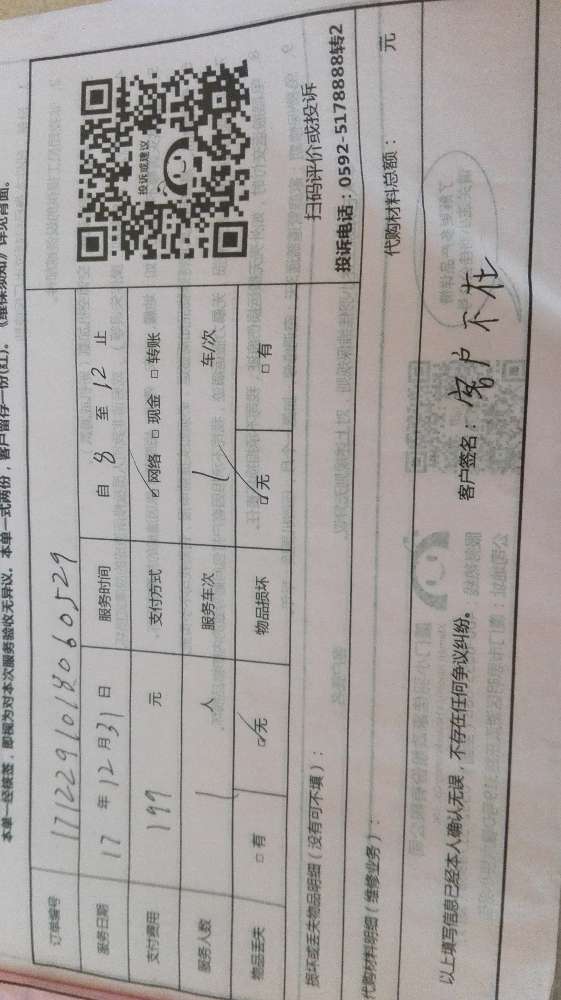 本单一经核签，即视为对本次服务验收无异议。本单一式两份，客户留存一份(红)。《维保须知》详见背面。
订单编号 171229101806 0529
服务日期 17 年 12 月 31 日 服务时间 自 8 至 12 止
支付费用 199 元 支付方式 ☑网络 □现金 □转账
服务人数 1 人 服务车次 1 车/次
物品丢失 □有 ☑无 物品损坏 ☑无 □有
投诉或建议
扫码评价或投诉
投诉电话：0592-5178888转2
损坏或丢失物品明细（没有可不填）：
代购材料明细（维修业务）： 代购材料总额： 元
以上填写信息已经本人确认无误，不存在任何争议纠纷。 客户签名：客户不在